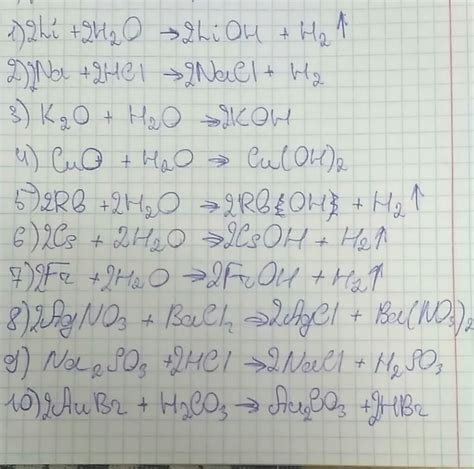 1) 2Li + 2H₂O → 2LiOH + H₂↑
2) 2Na + 2HCl → 2NaCl + H₂
3) K₂O + H₂O → 2KOH
4) CuO + H₂O → Cu(OH)₂
5) 2RB + 2H₂O → 2RB{OH} + H₂↑
6) 2Cs + 2H₂O → 2CsOH + H₂↑
7) 2Fr + 2H₂O → 2FrOH + H₂↑
8) 2AgNO₃ + BaCl₂ → 2AgCl + Ba(NO₃)₂
9) Na₂SO₃ + 2HCl → 2NaCl + H₂SO₃
10) 2AuBr + H₂CO₃ → Au₂CO₃ + 2HBr